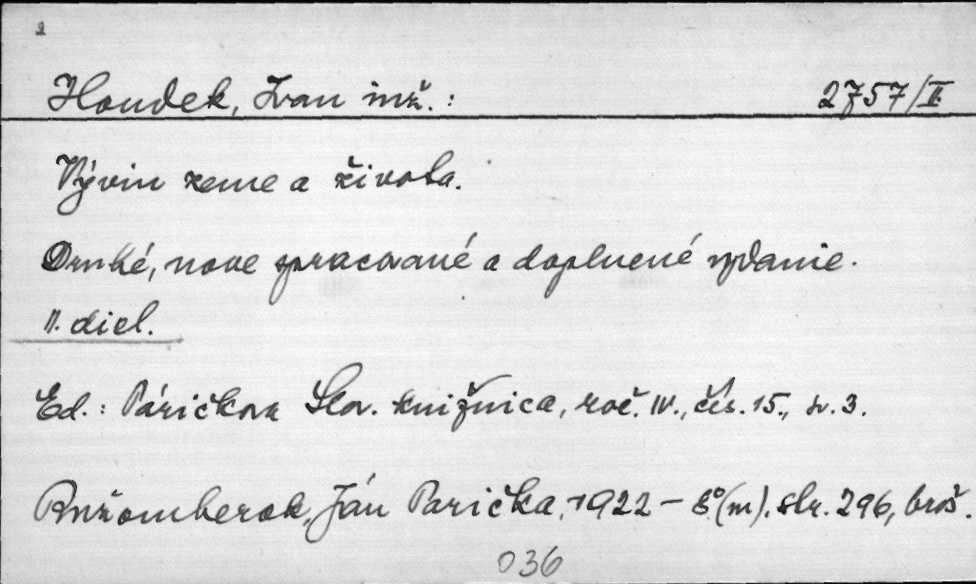 Houdek, Ivan inž.: 2757/II
Vývin zeme a života.
Druhé, nove spracované a doplnené vydanie.
II. diel.
Ed.: Páričkova Slov. knižnica, roč. IV., čís. 15., sv. 3.
Ružomberok, Ján Parička, 1922 - 8°(m). str. 296, brož.
036